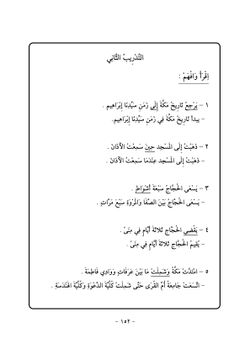 التَّدْرِيبُ الثَّانِي
اِقْرَأْ وَافْهَمْ :
١ – يَرْجِعُ تَارِيخُ مَكَّةَ إِلَى زَمَنِ سَيِّدِنَا إِبْرَاهِيم .
– يبدأ تَارِيخُ مَكَّةَ فِي زَمَنِ سَيِّدِنَا إِبْرَاهِيم .
٢ – ذَهَبْتُ إِلَى المَسْجِد حِينَ سَمِعْتُ الأَذَانَ .
– ذَهَبْتُ إِلَى المَسْجِد عِنْدَمَا سَمِعْتُ الأَذَانَ .
٣ – يَسْعَى الحُجَّاجُ سَبْعَةَ أَشْوَاطٍ .
– يَسْعَى الحُجَّاجُ بَيْنَ الصَّفَا وَالمَرْوَةِ سَبْعَ مَرَّاتٍ .
٤ – يَقْضِي الحُجَّاجُ ثَلاثَةَ أَيَّامٍ فِي مِنًى .
– يُقِيمُ الحُجَّاجُ ثَلاثَةَ أَيَّامٍ فِي مِنًى .
٥ – امْتَدَّتْ مَكَّةُ وَشَمِلَتْ مَا بَيْنَ عَرَفَاتٍ وَوَادِي فَاطِمَةَ .
– اتَّسَعَتْ جَامِعَةُ أُمِّ القُرَى حَتَّى شَمِلَتْ كُلِّيَّةَ الدَّعْوَةِ وَكُلِّيَّةَ الهَنْدَسَةِ .
– ١٥٢ –